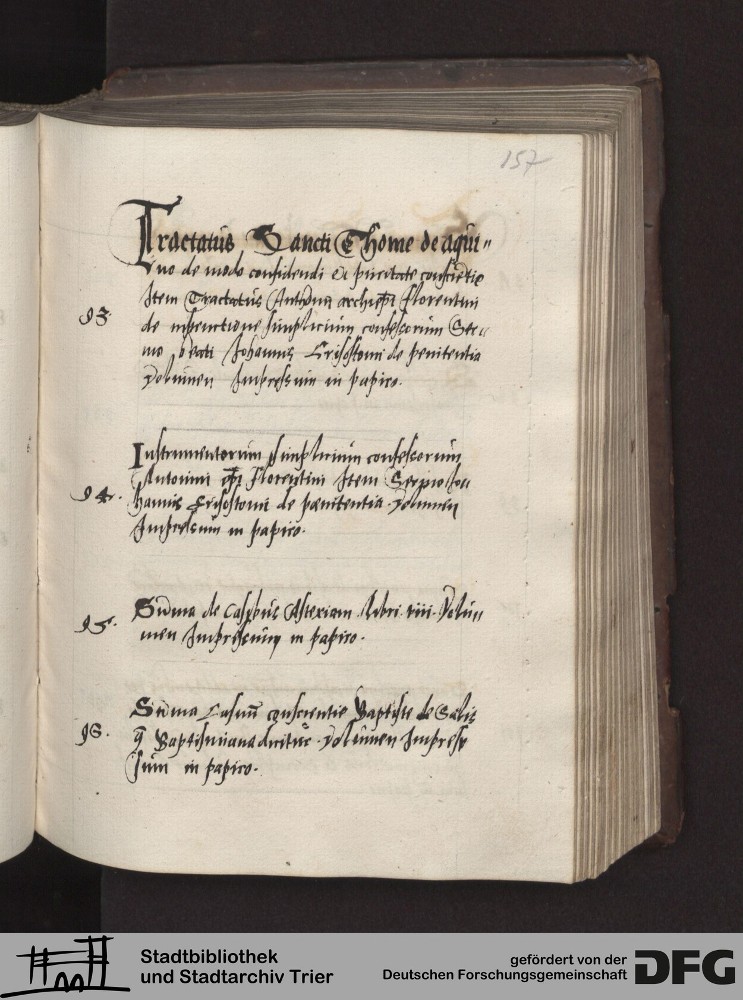 157
Tractatus Sancti Thome de aqui"
no de modo confitendi et puritate conscientie
Item Tractatus Anthonii archiepi Florentini
93.
de instructione simplicium confessorum Ser"
mo beati Johannis Crisostomi de penitentia
Volumen Impressum in papiro.
Instrumentorum simplicium confessorum
Antonini epi Florentini Item Sermo Jo"
94.
hannis Crisostomi de penitentia. Volumen
Impressum in papiro.
Suma de Casibus Astexiani libri viii. Volu"
95.
men Impressum in papiro.
Suma Casuum conscientie Baptiste de Salis
96.
q Baptisiniana dicitur. Volumen Impres"
sum in papiro.
Stadtbibliothek
und Stadtarchiv Trier
gefördert von der
Deutschen Forschungsgemeinschaft
DFG